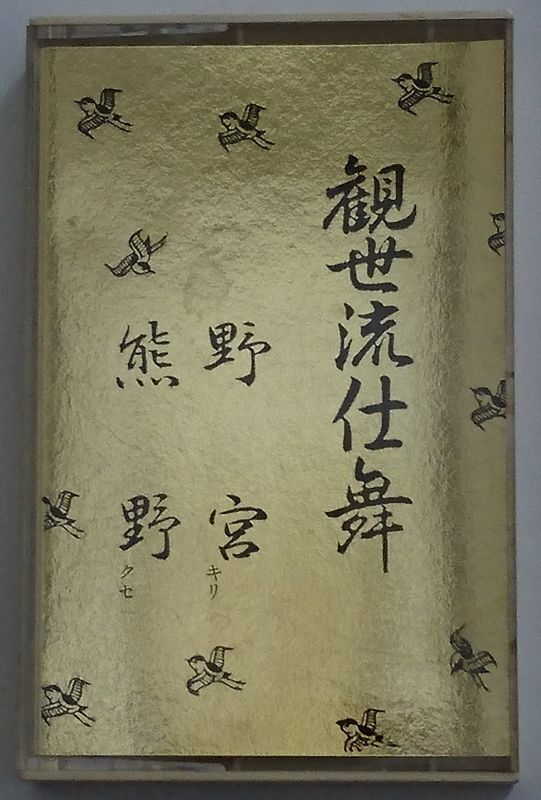 観世流仕舞
野宮キリ
熊野クセ